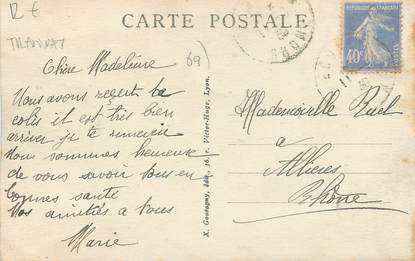 12 €
TRAMWAY
CARTE POSTALE
69)
RÉPUBLIQUE FRANÇAISE
40c
POSTES
Chère Madeleine
Nous avons reçert le
colis il est très bien
arriver je te remercie
Nous sommes heureuse
de vous savoir tous en
bonnes santé
Nos amitiés a tous
Marie
X. Goutagny, édit., 36, r. Victor-Hugo, Lyon.
Mademoiselle
à
Allières
Rhône